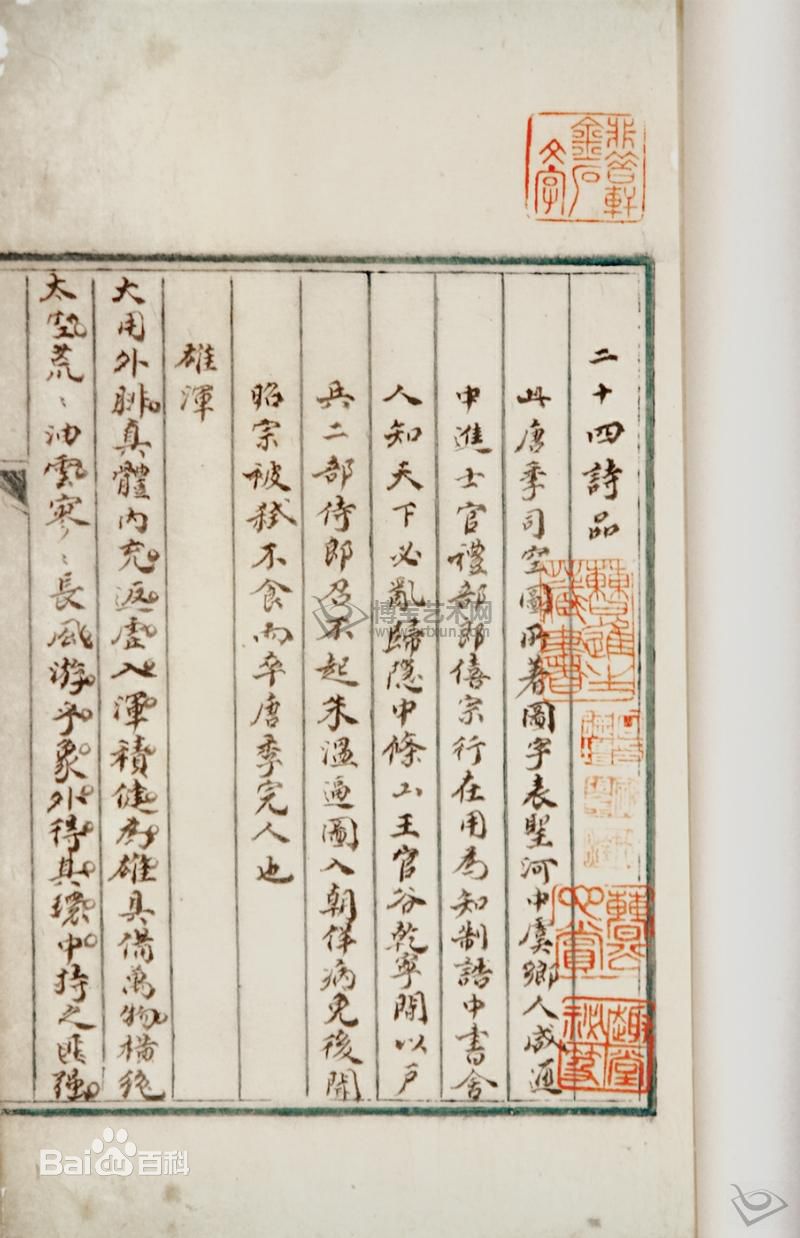 二十四詩品
此唐季司空圖所著圖字表聖河中虞鄉人咸通
中進士官禮部郎僖宗行在用為知制誥中書舍
人知天下必亂歸隱中條山王官谷乾寧間以戶
兵二部侍郎召不起朱溫逼圖入朝佯病免後聞
昭宗被弒不食而卒唐季完人也
雄渾
大用外腓真體內充返虛入渾積健為雄具備萬物橫絕
太空荒〻油雲寥〻長風游予象外得其環中持之匪强
金石文字
趣堂
博宝艺术网
www.artxun.com
Bai百科